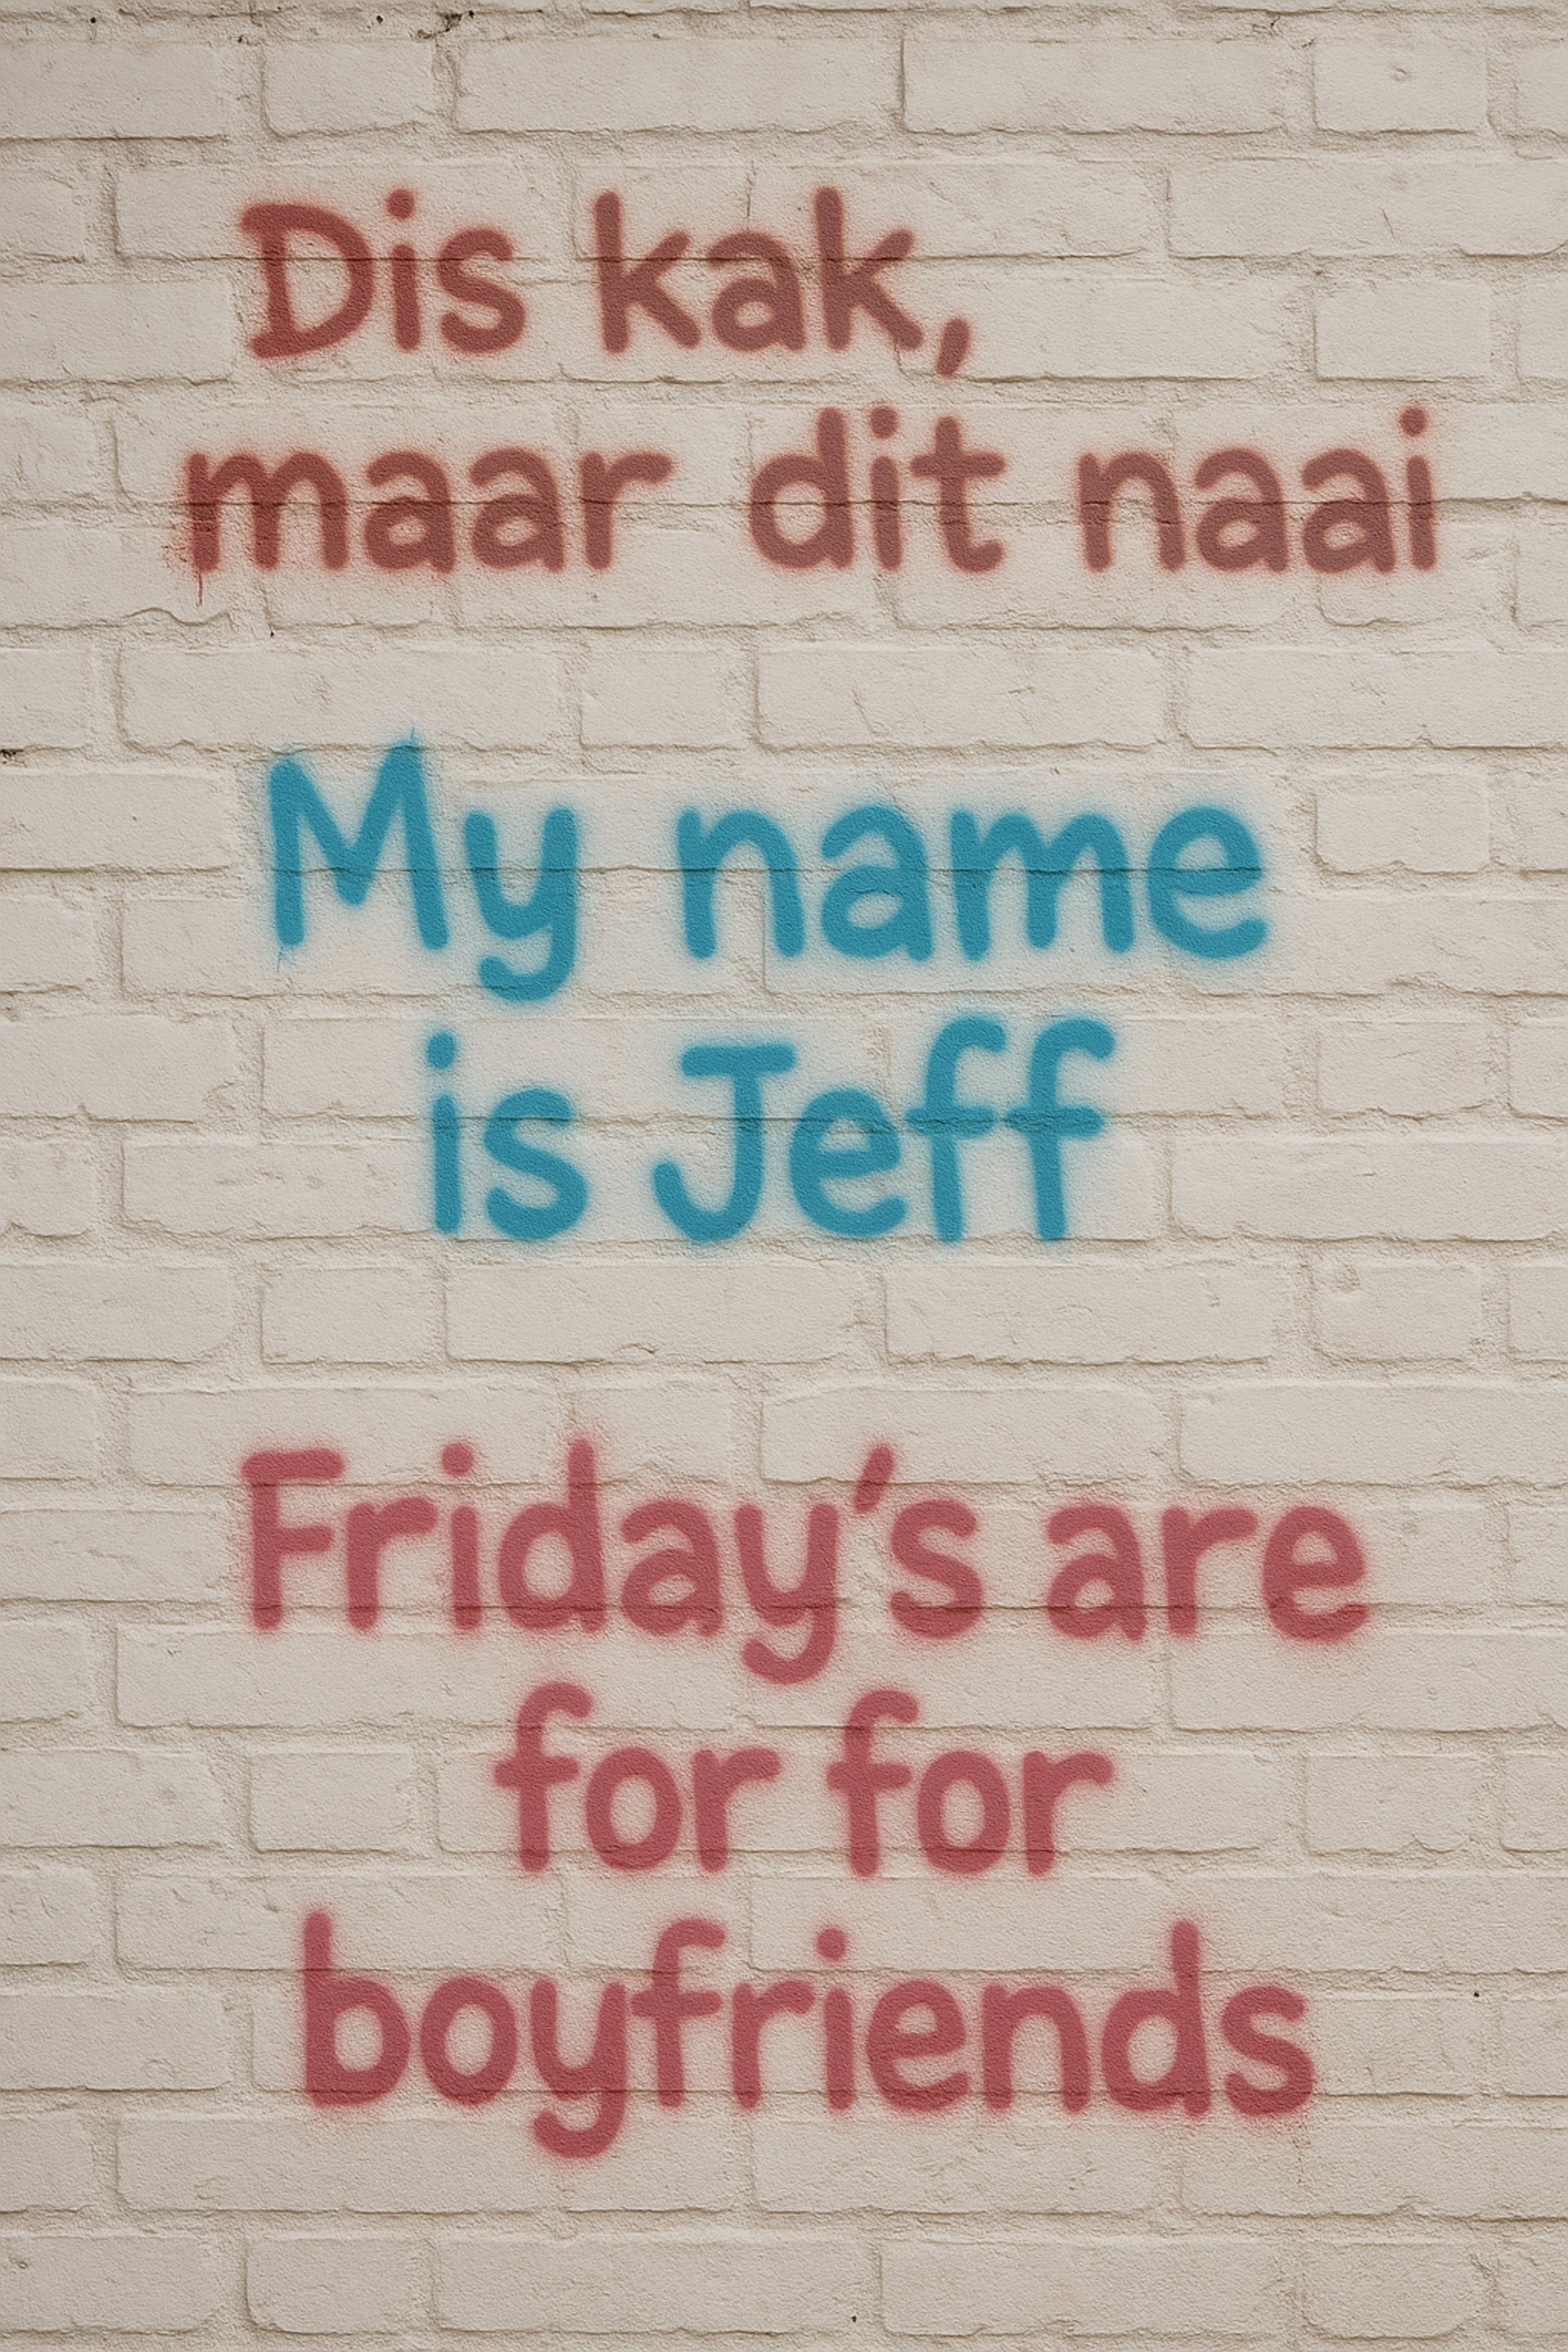 Dis kak,
maar dit naai
My name
is Jeff
Friday's are
for for
boyfriends